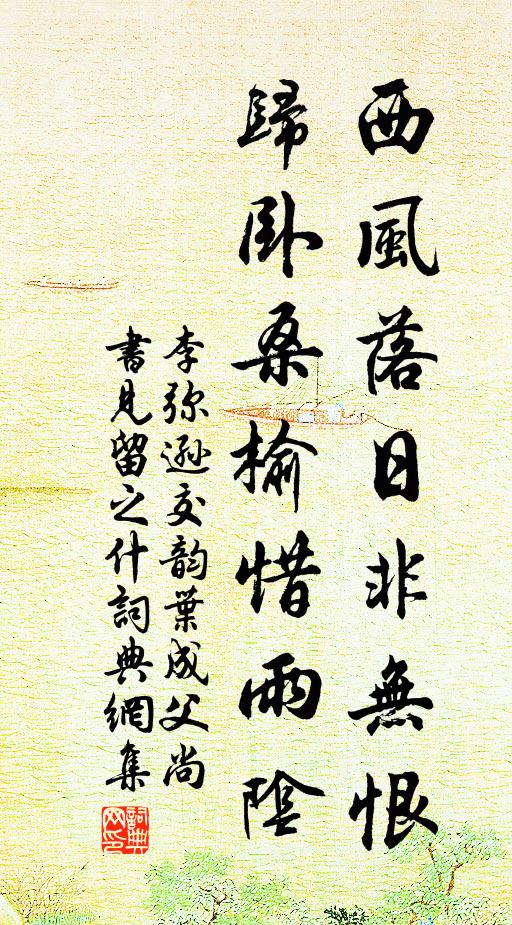 西風落日非無恨
歸卧桑榆惜雨陰
李弥遜次韵葉成父尚
書見留之什詞典網集
詞典网印